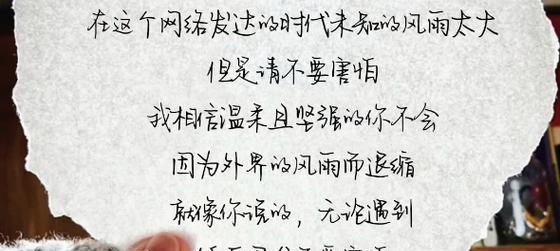 在这个网络发达的时代未知的风雨太大
但是请不要害怕
我相信温柔且坚强的你不会
因为外界的风雨而退缩
就像你说的，无论遇到